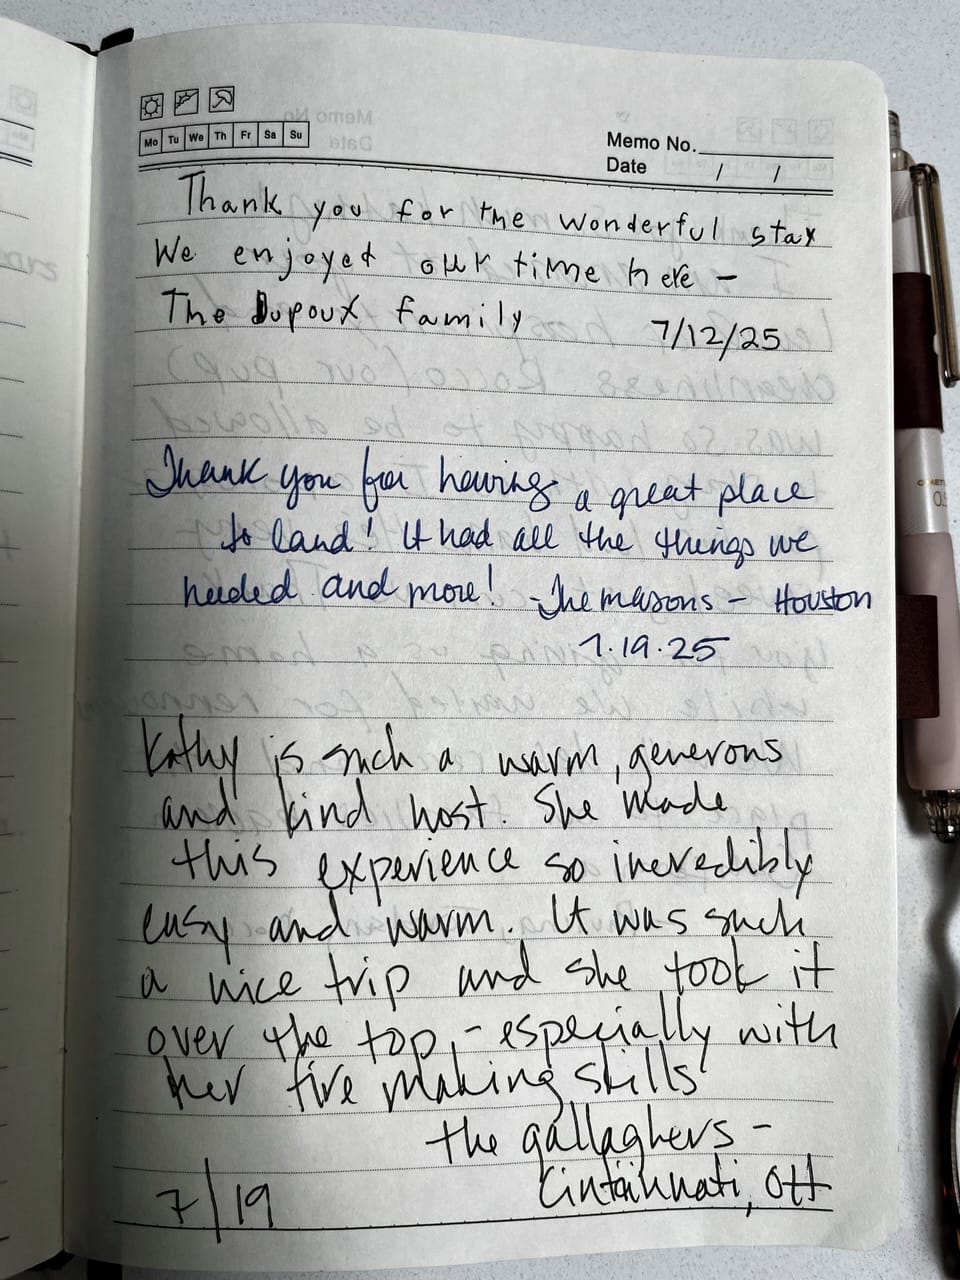 Mo Tu We Th Fr Sa Su
Memo No.
Date / /
Thank you for the wonderful stay
We enjoyed our time here -
The Dupoux family
7/12/25
Thank you for having a great place
to land! It had all the things we
needed and more! - The Masons - Houston
7.19.25
Kathy is such a warm, generous
and kind host. She made
this experience so incredibly
easy and warm. It was such
a nice trip and she took it
over the top, - especially with
her fire making skills!
the gallaghers -
Cintainnati, OH
7/19